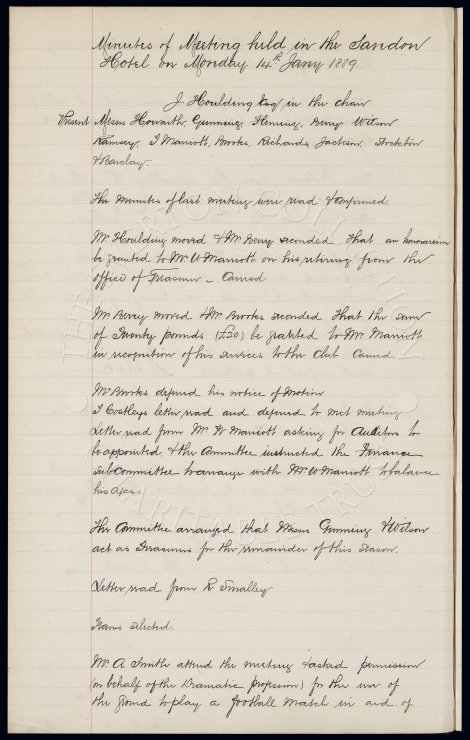 Minutes of Meeting held in the Sandon
Hotel on Monday 14th Jany 1889.
J Houlding Esq in the chair
Present Messrs Howarth, Gunning, Fleming, Berry Wilson
Ramsey, T Marriott, Brooks, Richards, Jackson, Stockton
& Barclay.
The minutes of last meeting were read & confirmed.
Mr Houlding moved & Mr Berry seconded That an honorarium
be granted to Mr W Marriott on his retiring from the
office of Treasurer – Carried
Mr Berry moved & Mr Brooks seconded That the sum
of Twenty pounds (£20) be granted to Mr Marriott
in recognition of his services to the Club Carried.
Mr Brooks deferred his notice of motion
T Costleys letter read and deferred to next meeting
Letter read from Mr W Marriott asking for Auditors to
be appointed & the committee instructed the Finance
Sub Committee to arrange with Mr W Marriott to balance
his
The Committee arranged that Messrs Gunning & Wilson
act as Treasurers for the remainder of this season.
Letter read from R Smalley
Teams selected.
Mr A Smith attend the meeting & asked permission
(on behalf of the Dramatic profession) for the use of
the ground to play a football match in aid of
THE EVERTON COLLECTION
CHARITABLE TRUST